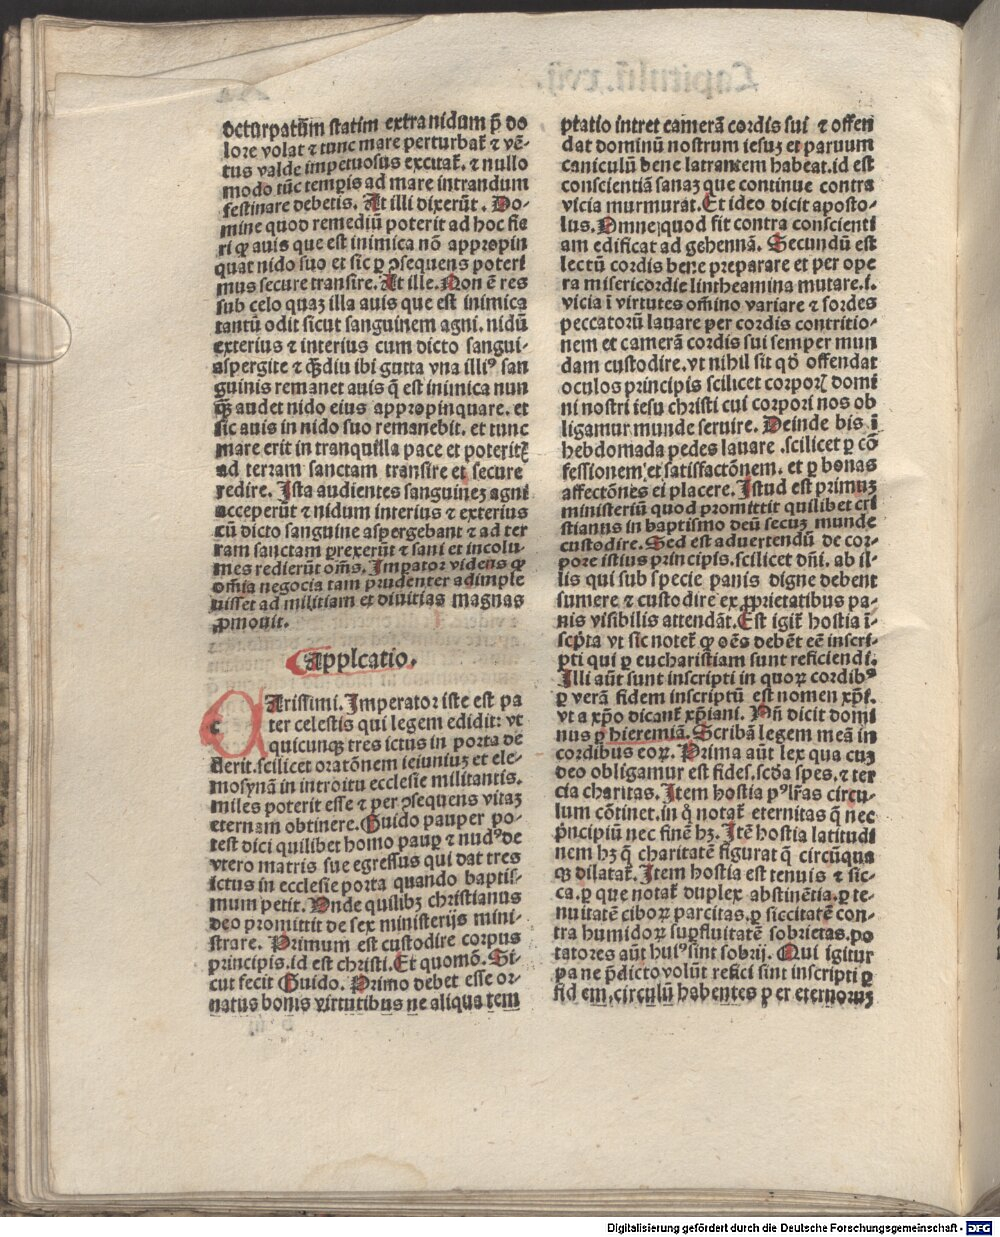 deturpatũm statim extra nidum p̃ do
lore volat ⁊ tunc mare perturbat̃ ⁊ vẽ-
tus valde impetuosus excitat̃. ⁊ nullo
modo tũc temp̲is ad mare intrandum
festinare debetis. At illi dixerũt. Do-
mine quod remediũ poterit ad hoc fie
ri ꝙ auis que est inimica nõ appropin
quat nido suo et sic ꝑ ꝯsequens poteri
mus secure transire. At ille. Non ẽ res
sub celo quaȝ illa auis que est inimica
tantũ odit sicut sanguinem agni. nidũ
exterius ⁊ interius cum dicto sangui-
aspergite ⁊ q̃̃diu ibi gutta vna illiꝰ san
guinis remanet auis q̃ est inimica nun
q̃̃ audet nido eius appropinquare. et
sic auis in nido suo remanebit. et tunc
mare erit in tranquilla pace et poteritꝭ
ad terram sanctam transire et secure
redire. Ista audientes sanguineȝ agni
acceperũt ⁊ nidum interius ⁊ exterius
cũ dicto sanguine aspergebant ⁊ ad ter
ram sanctam prexerũt ⁊ sani et incolu-
mes redierũt om̃s. Imꝑator videns ꝙ
om̃ia negocia tam prudenter adimple
uisset ad militiam et diuitias magnas
ꝓmouit.
Applcatio.
c Arissimi. Imperator iste est pa
ter celestis qui legem edidit: vt
quicunqȝ tres ictus in porta de
derit. scilicet oratõnem ieiuniuȝ et ele-
mosynã in introitu ecclesie militantis.
miles poterit esse ⁊ per ꝯsequens vitaȝ
eternam obtinere. Guido pauper po-
test dici quilibet homo pauꝑ ⁊ nudꝰ de
vtero matris sue egressus qui dat tres
ictus in ecclesie porta quando baptis-
mum petit. Vnde quilibȝ christianus
deo promittit de sex ministerijs mini-
strare. Primum est custodire corpus
principis. id est christi. Et quomõ. Si-
cut fecit Guido. Primo debet esse or-
natus bonis virtutibus ne aliqua tem
ptatio intret camerã cordis sui ⁊ offen
dat dominũ nostrum iesuȝ et paruum
caniculũ bene latrantem habeat. id est
conscientiã sanaȝ que continue contra
vicia murmurat. Et ideo dicit aposto-
lus. Omne quod fit contra conscienti
am edificat ad gehennã. Secundũ est
lectũ cordis bene preparare et per ope
ra misericordie lintheamina mutare. i.
vicia ĩ virtutes om̃ino variare ⁊ sordes
peccatorũ lauare per cordis contritio-
nem et camerã cordis sui semper mun
dam custodire. vt nihil sit qð offendat
oculos principis scilicet corporꝭ domi
ni nostri iesu christi cui corpori nos ob
ligamur munde seruire. Deinde bis ĩ
hebdomada pedes lauare. scilicet ꝑ cõ
fessionem et satisfactõnem. et ꝑ bonas
affectõnes ei placere. Istud est primuȝ
ministeriũ quod promittit quilibet cri
stianus in baptismo deũ secuȝ munde
custodire. Sed est aduertendũ de cor-
pore istius principis. scilicet dñi. ab il-
lis qui sub specie panis digne debent
sumere ⁊ custodire ex ꝓprietatibus pa-
nis visibilis attendãt. Est igit̃ hostia ĩ-
scp̃ta vt sic notet̃ ꝙ oẽs debẽt eẽ inscri-
pti qui ꝑ eucharistiam sunt reficiendi.
Illi aũt sunt inscripti in quoꝝ cordibꝰ
ꝑ verã fidem inscriptũ est nomen xp̃i.
vt a xp̃o dicant̃ xp̃iani. Vñ dicit domi
nus ꝑ hieremiã. Scribã legem meã in
cordibus eoꝝ. Prima aũt lex qua cuȝ
deo obligamur est fides. scd̃a spes. ⁊ ter
cia charitas. Item hostia pꝰ lr̃as circu-
lum cõtinet. in q̃ notat̃ eternitas q̃ nec
p̃ncipiũ nec finẽ hȝ. Itẽ hostia latitudi
nem hȝ q̃ charitatẽ figurat q̃ circũqua
qȝ dilatat̃. Item hostia est tenuis ⁊ sic-
ca. ꝑ que notat̃ duplex abstinẽtia. ꝑ te-
nuitatẽ ciboꝝ parcitas. ꝑ siccitatẽ con-
tra humidoꝝ suꝑfluitatẽ sobrietas. po
tatores aũt huiꝰ sint sobrij. Qui igitur
pane p̃dicto volũt refici sint inscripti ꝑ
fidem, circulũ habentes per eternoruȝ
Digitalisierung gefördert durch die Deutsche Forschungsgemeinschaft - DFG